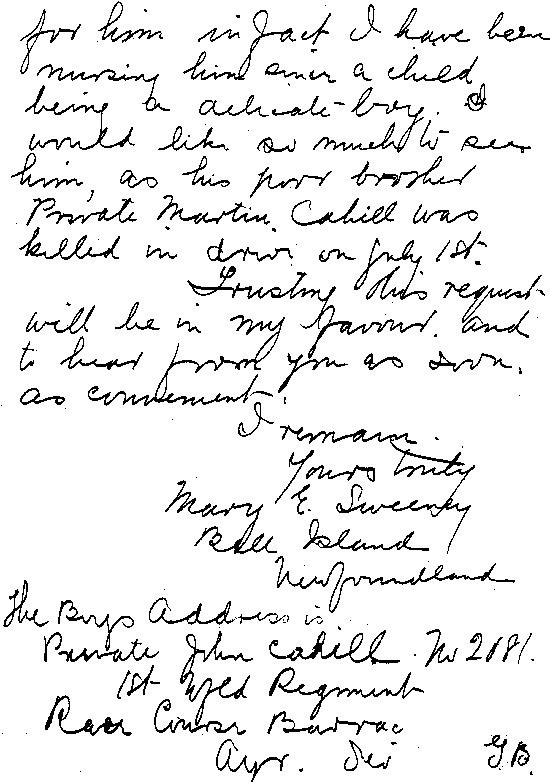 for him in fact I have been
nursing him since a child,
being a delicate boy. I
would like so much to see
him, as his poor brother
Private Martin. Cahill was
killed in drive on July 1st.
Trusting this request
will be in my favour. and
to hear from you as soon.
as convenient.
I remain.
Yours truly
Mary E. Sweeney
Bell Island
Newfoundland
The Boys Address is
Private John Cahill. No 2081.
1st Nfld Regiment
Race Course Barrac
Ayr. G.B.